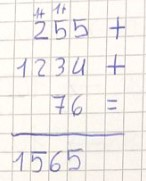 1+ 1+
255 +
1234 +
76 =
1565